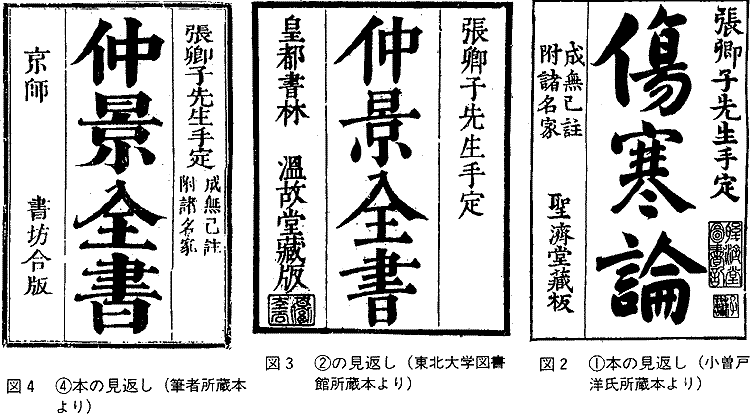 張卿子先生手定
傷寒論
成無己註
附諸名家
聖濟堂藏板
図2　①本の見返し（小曽戸
洋氏所蔵本より）
張卿子先生手定
仲景全書
皇都書林　温故堂藏版
図3　②の見返し（東北大学図書
館所蔵本より）
張卿子先生手定
成無己註
附諸名家
仲景全書
京師　書坊合版
図4　④本の見返し（筆者所蔵本
より）